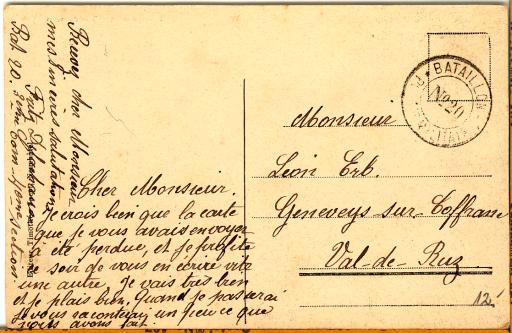 Cher Monsieur.
Je crois bien que la carte
que je vous avais envoyer
a été perdue, et je profite
ce soir de vous en écrire vite
une autre. Je vais très bien
et je plais bien. Quand je passerai
je vous raconterai un peu ce que
nous avons fait.
Recevez cher Monsieur
mes sincères salutations
Fritz
Bat. 20.
BATAILLON
No 20
Monsieur
Léon Erb.
Geneveys sur Coffrane
Val-de-Ruz.
12.